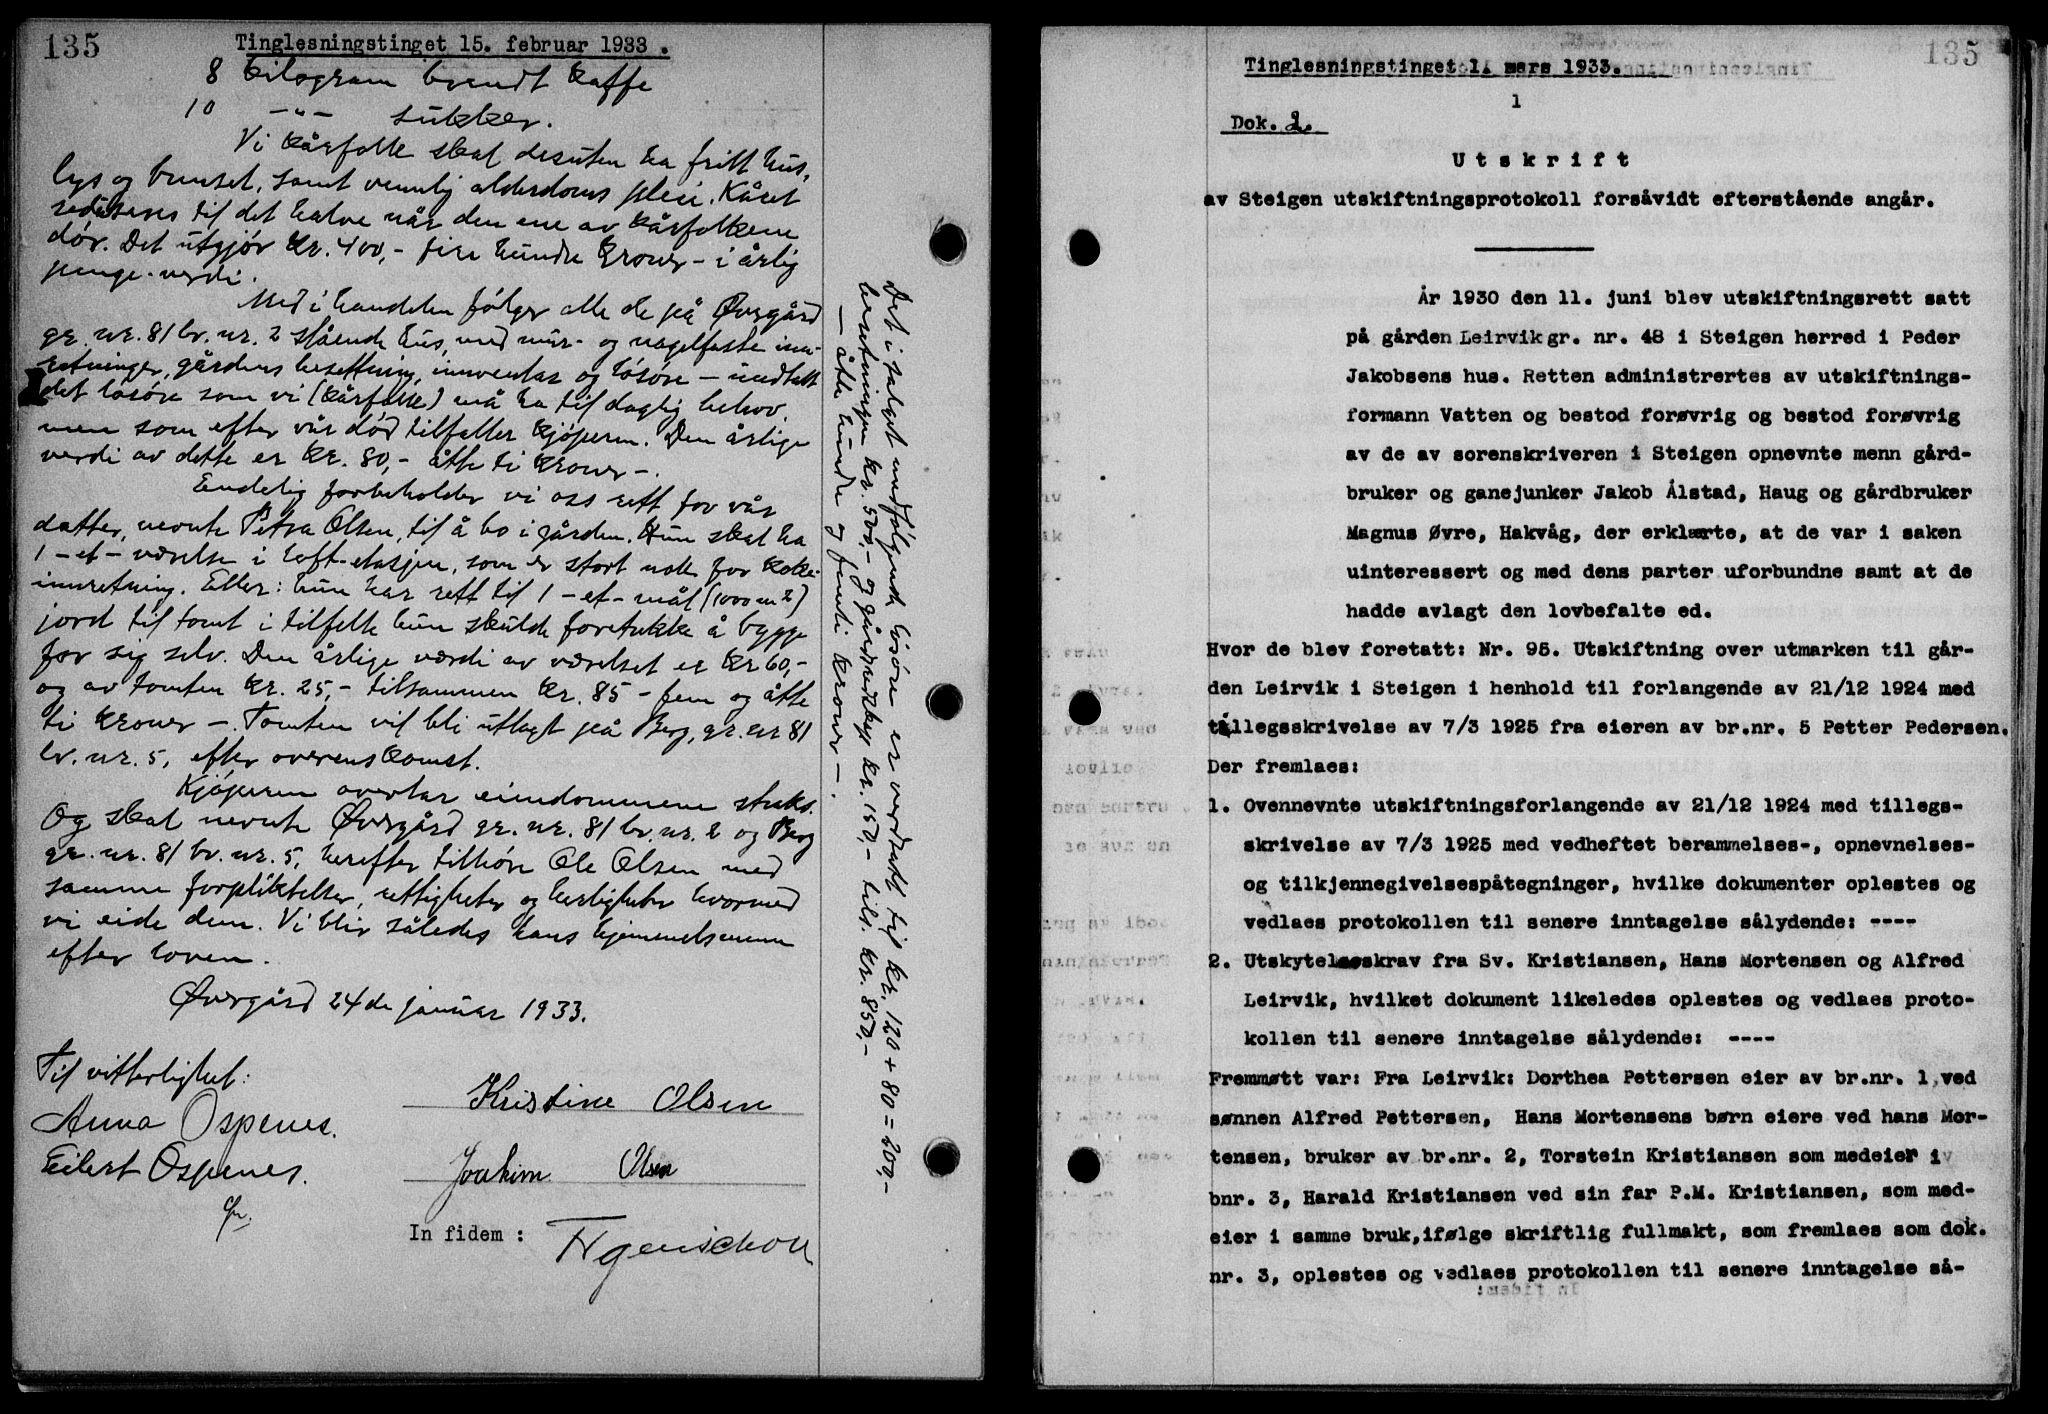 135
Tinglesningstinget 15. februar 1933.
8 kilogram brendt kaffe
10 -"- sukker.
Vi kårfolk skal desuten ha fritt hus,
lys og brensel, samt vennlig alderdoms pleie. Kåret
reduseres til det halve når den ene av kårfolkene
dør. Det utgjør kr. 400,- fire hundre kroner - i årlig
penge-verdi.
Med i handelen følger alle de på Øvergård
gr. nr. 81 br. nr. 2 stående hus, med mur- og nagelfaste inn-
retninger, gårdens besettning, innventar og løsøre - undtatt
det løsøre som vi (kårfolk) må ha til daglig behov,
men som efter vår død tilfaller kjøperen. Den årlige
verdi av dette er kr. 80,- åtte ti kroner -.
Endelig forbeholder vi oss rett for vår
datter, nevnte Petra Olsen, til å bo i gården. Hun skal ha
1 - et - værelse i loft-etasjen, som er stort nok for koke-
innretning. Eller: hun har rett til 1 - et - mål (1000 m2)
jord til tomt i tilfelle hun skulde foretrekke å bygge
for sig selv. Den årlige værdi av værelset er kr 60,-
og av tomten kr. 25,- tilsammen kr. 85 - fem og åtte
ti kroner -. Tomten vil bli utlagt på Berg, gr. nr 81
br. nr. 5, efter overenskomst.
Kjøperen overtar eiendommene straks.
Og skal nevnte Øvergård gr. nr. 81 br. nr. 2 og Berg
gr. nr. 81 br. nr. 5, herefter tilhøre Ole Olsen med
samme forpliktelser, rettigheter og herligheter hvormed
vi eide dem. Vi blir således hans hjemmelsmenn
efter loven.
Øvergård 24de januar 1933.
Til vitterlighet:
Anna Ospenes.
Eilert Ospenes.
Kristine Olsen
Joakim Olsen
In fidem :
Det i salget medfølgende løsøre er verdsatt til kr. 120 + 80 = 200,-
besetningen kr. 500,- og gårdsredskap kr. 150,- tils. kr. 850,-
- åtte hundre og femti kroner -.
135
Tinglesningstinget 1. mars 1933.
1
Dok. 2.
Utskrift
av Steigen utskiftningsprotokoll forsåvidt efterstående angår.
År 1930 den 11. juni blev utskiftningsrett satt
på gården Leirvik gr. nr. 48 i Steigen herred i Peder
Jakobsens hus. Retten administrertes av utskiftnings-
formann Vatten og bestod forøvrig og bestod forøvrig
av de av sorenskriveren i Steigen opnevnte menn gård-
bruker og ganejunker Jakob Ålstad, Haug og gårdbruker
Magnus Øvre, Hakvåg, der erklærte, at de var i saken
uinteressert og med dens parter uforbundne samt at de
hadde avlagt den lovbefalte ed.
Hvor de blev foretatt: Nr. 95. Utskiftning over utmarken til går-
den Leirvik i Steigen i henhold til forlangende av 21/12 1924 med
tillegsskrivelse av 7/3 1925 fra eieren av br.nr. 5 Petter Pedersen.
Der fremlaes:
1. Ovennevnte utskiftningsforlangende av 21/12 1924 med tillegs-
skrivelse av 7/3 1925 med vedheftet berammelses-, opnevnelses-
og tilkjennegivelsespåtegninger, hvilke dokumenter oplestes og
vedlaes protokollen til senere inntagelse sålydende: ----
2. Utskytelseskrav fra Sv. Kristiansen, Hans Mortensen og Alfred
Leirvik, hvilket dokument likeledes oplestes og vedlaes proto-
kollen til senere inntagelse sålydende: ----
Fremmøtt var: Fra Leirvik: Dorthea Pettersen eier av br.nr. 1, ved
sønnen Alfred Pettersen, Hans Mortensens børn eiere ved hans Mor-
tensen, bruker av br.nr. 2, Torstein Kristiansen som medeier i
bnr. 3, Harald Kristiansen ved sin far P.M. Kristiansen, som med-
eier i samme bruk, ifølge skriftlig fullmakt, som fremlaes som dok.
nr. 3, oplestes og vedlaes protokollen til senere inntagelse så-